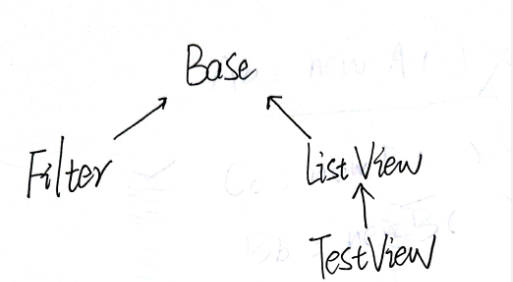 Base
Filter
ListView
TestView